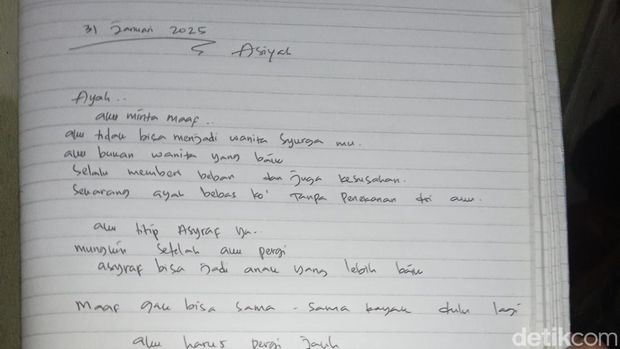 31 Januari 2025
Asiyah
Ayah..
aku minta maaf..
aku tidak bisa menjadi wanita syurga mu.
aku bukan wanita yang baik
selalu memberi beban dan juga kesusahan.
Sekarang ayah bebas ko' Tanpa Penekanan dri aku.
aku titip Asyraf ya..
mungkin setelah aku pergi
asyraf bisa jadi anak yang lebih baik
Maaf gak bisa sama-sama kayak dulu lagi
aku harus pergi jauh
detikcom